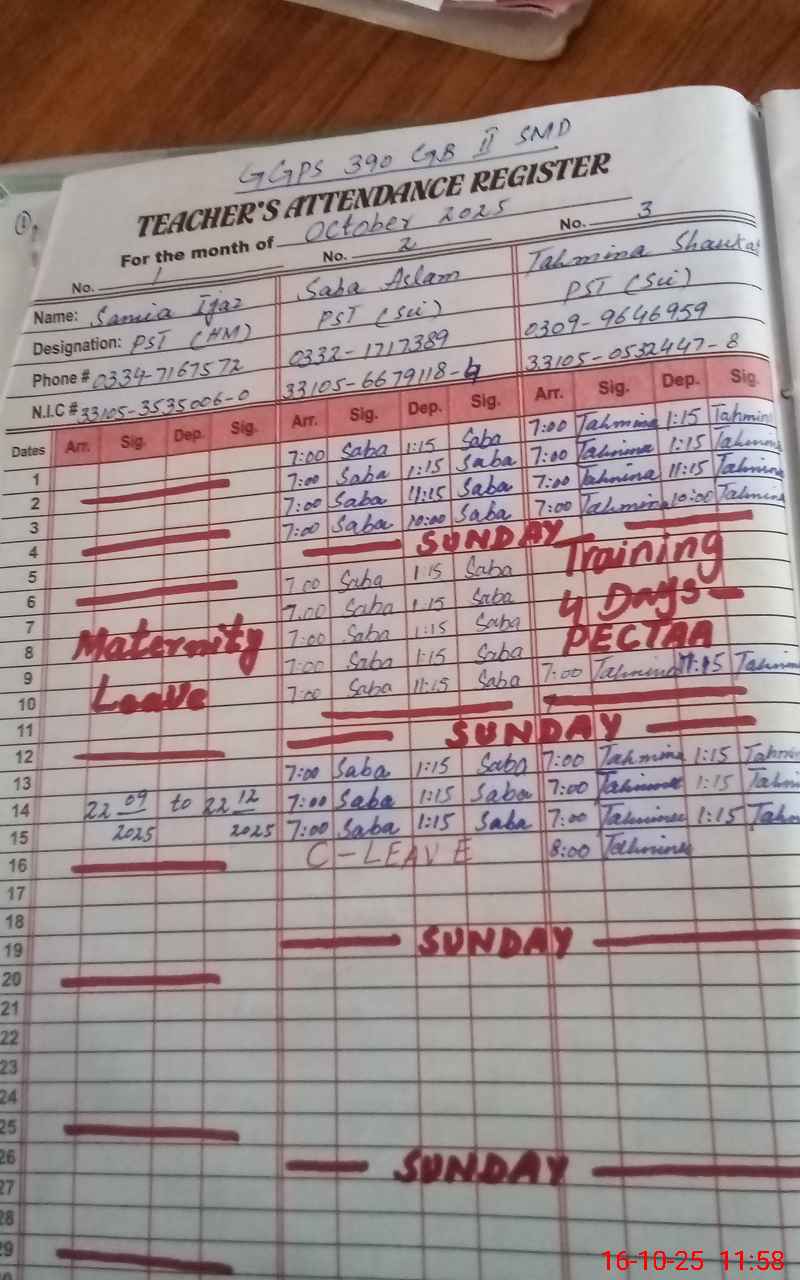 GGPS 390 GB II SMD
TEACHER'S ATTENDANCE REGISTER
For the month of October 2025
No. 1 No. 2 No. 3
Name: Samia Ijaz Saba Aslam Tahmina Shaukat
Designation: PST (HM) PST (Sci) PST (Sci)
Phone # 0334-7167572 0332-1717389 0309-9646959
N.I.C # 33105-3535006-0 33105-6679118-4 33105-0532447-8
Dates Arr. Sig. Dep. Sig. Arr. Sig. Dep. Sig. Arr. Sig. Dep. Sig.
1 7:00 Saba 1:15 Saba 7:00 Tahmina 1:15 Tahmina
2 7:00 Saba 1:15 Saba 7:00 Tahmina 1:15 Tahmina
3 7:00 Saba 11:15 Saba 7:00 Tahmina 11:15 Tahmina
4 7:00 Saba 10:00 Saba 7:00 Tahmina 10:00 Tahmina
5 SUNDAY
6 7:00 Saba 1:15 Saba Training
7 7:00 Saba 1:15 Saba 4 Days
8 Maternity 7:00 Saba 1:15 Saba PECTAA
9 7:00 Saba 1:15 Saba
10 Leave 7:00 Saba 11:15 Saba 7:00 Tahmina 11:15 Tahmina
11
12 SUNDAY
13 7:00 Saba 1:15 Saba 7:00 Tahmina 1:15 Tahmina
14 22 09 2025 to 22 12 2025 7:00 Saba 1:15 Saba 7:00 Tahmina 1:15 Tahmina
15 7:00 Saba 1:15 Saba 7:00 Tahmina 1:15 Tahmina
16 C-LEAVE 8:00 Tahmina
17
18
19 SUNDAY
20
21
22
23
24
25
26 SUNDAY
27
28
29
16-10-25 11:58